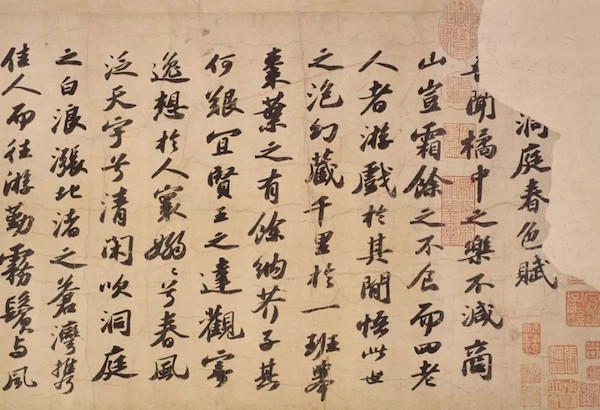 洞庭春色賦
聞橘中之樂不減商
山豈霜餘之不食而四老
人者游戲於其間悟此世
之泡幻藏千里於一班舉
棗葉之有餘納芥子其
何艱宜賢王之達觀寄
逸想於人寰嫋〻兮春風
泛天宇兮清閑吹洞庭
之白浪漲北渚之蒼灣攜
佳人而往游勤霧鬢与風